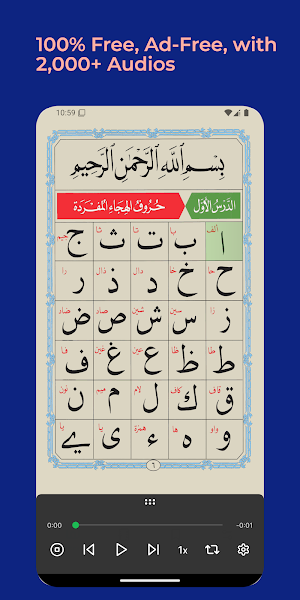 100% Free, Ad-Free, with
2,000+ Audios
10:59
بِسْمِ اللَّهِ الرَّحْمَٰنِ الرَّحِيمِ
الدَّرْسُ الْأَوَّلُ حُرُوفُ الْهِجَاءِ الْمُفْرَدَةِ
ألف با تا ثا جيم
ا ب ت ث ج
حا خا دال ذال را
ح خ د ذ ر
زا سين شين صاد ضاد
ز س ش ص ض
طا ظا عين غين فا
ط ظ ع غ ف
قاف كاف لام ميم نون
ق ك ل م ن
واو ها همزة يا يا
و ه ء ي ے
٦
0:00 -0:01
1x